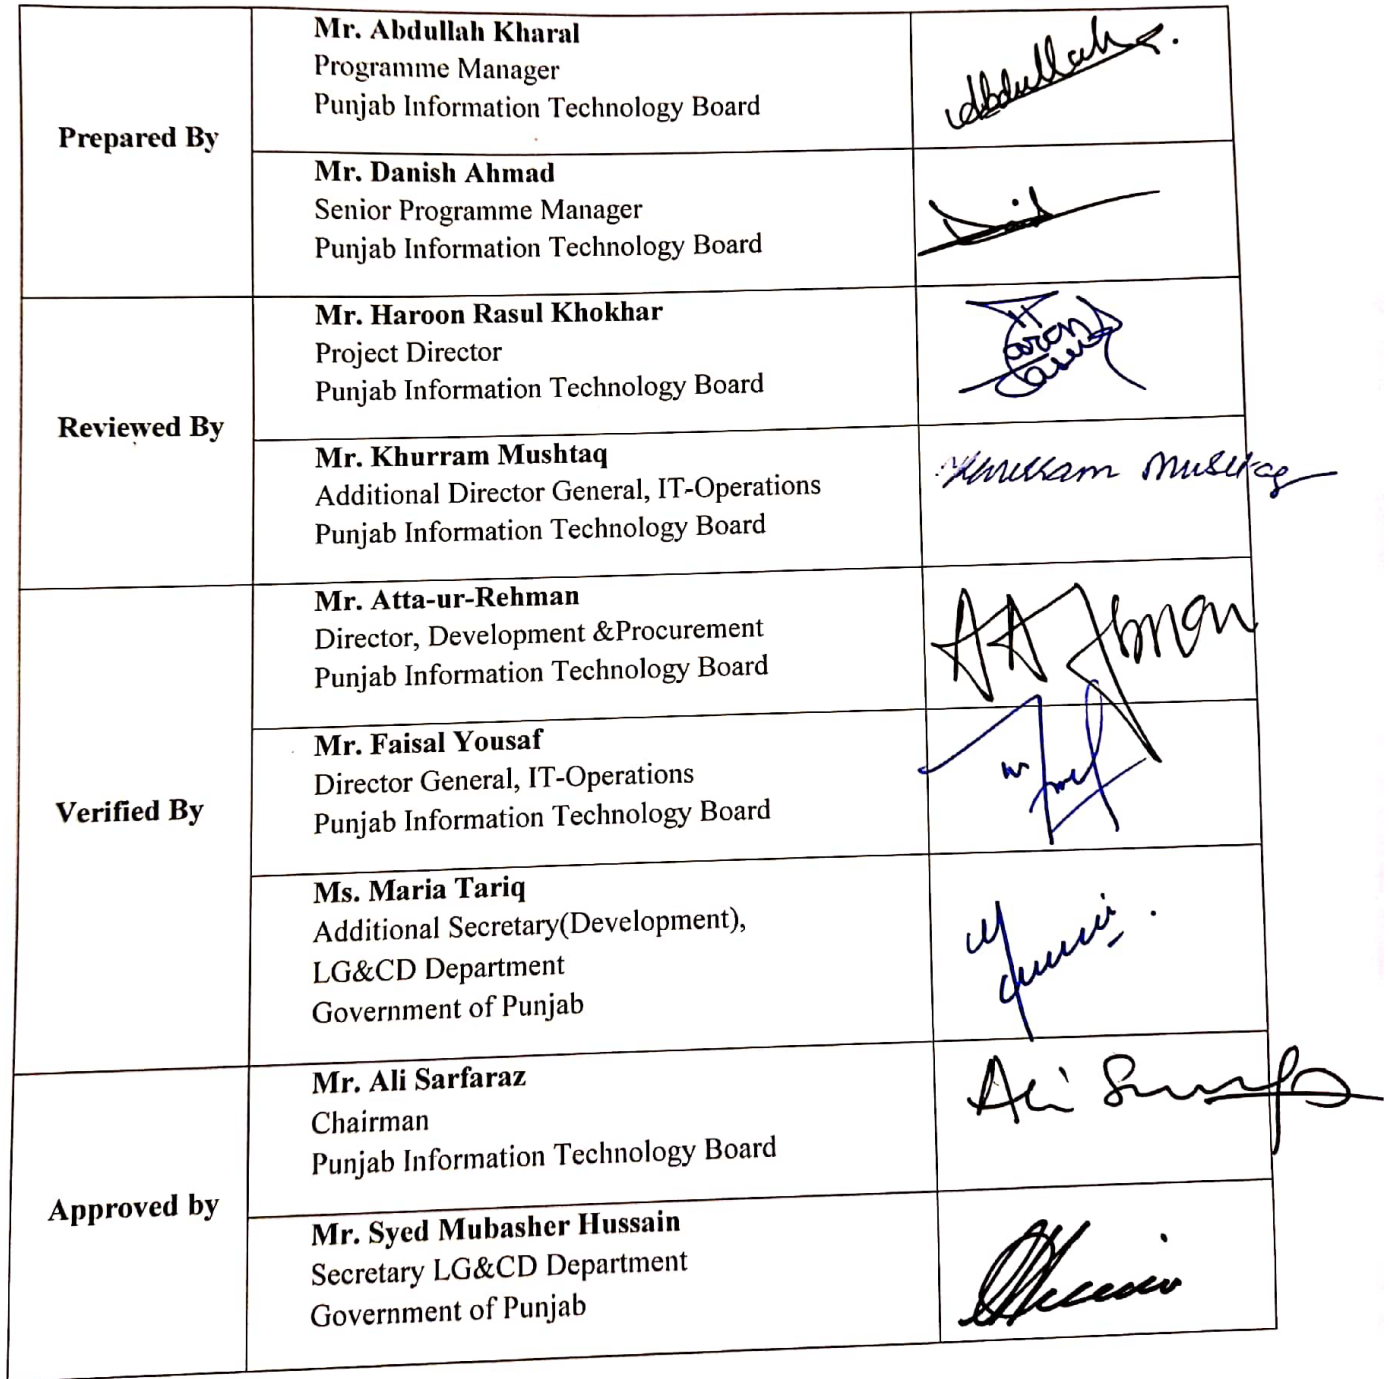 Prepared By
Mr. Abdullah Kharal
Programme Manager
Punjab Information Technology Board
Abdullah
Mr. Danish Ahmad
Senior Programme Manager
Punjab Information Technology Board
Reviewed By
Mr. Haroon Rasul Khokhar
Project Director
Punjab Information Technology Board
Haroon
Mr. Khurram Mushtaq
Additional Director General, IT-Operations
Punjab Information Technology Board
Khurram Mushtaq
Verified By
Mr. Atta-ur-Rehman
Director, Development &Procurement
Punjab Information Technology Board
Mr. Faisal Yousaf
Director General, IT-Operations
Punjab Information Technology Board
Ms. Maria Tariq
Additional Secretary(Development),
LG&CD Department
Government of Punjab
Approved by
Mr. Ali Sarfaraz
Chairman
Punjab Information Technology Board
Ali
Mr. Syed Mubasher Hussain
Secretary LG&CD Department
Government of Punjab